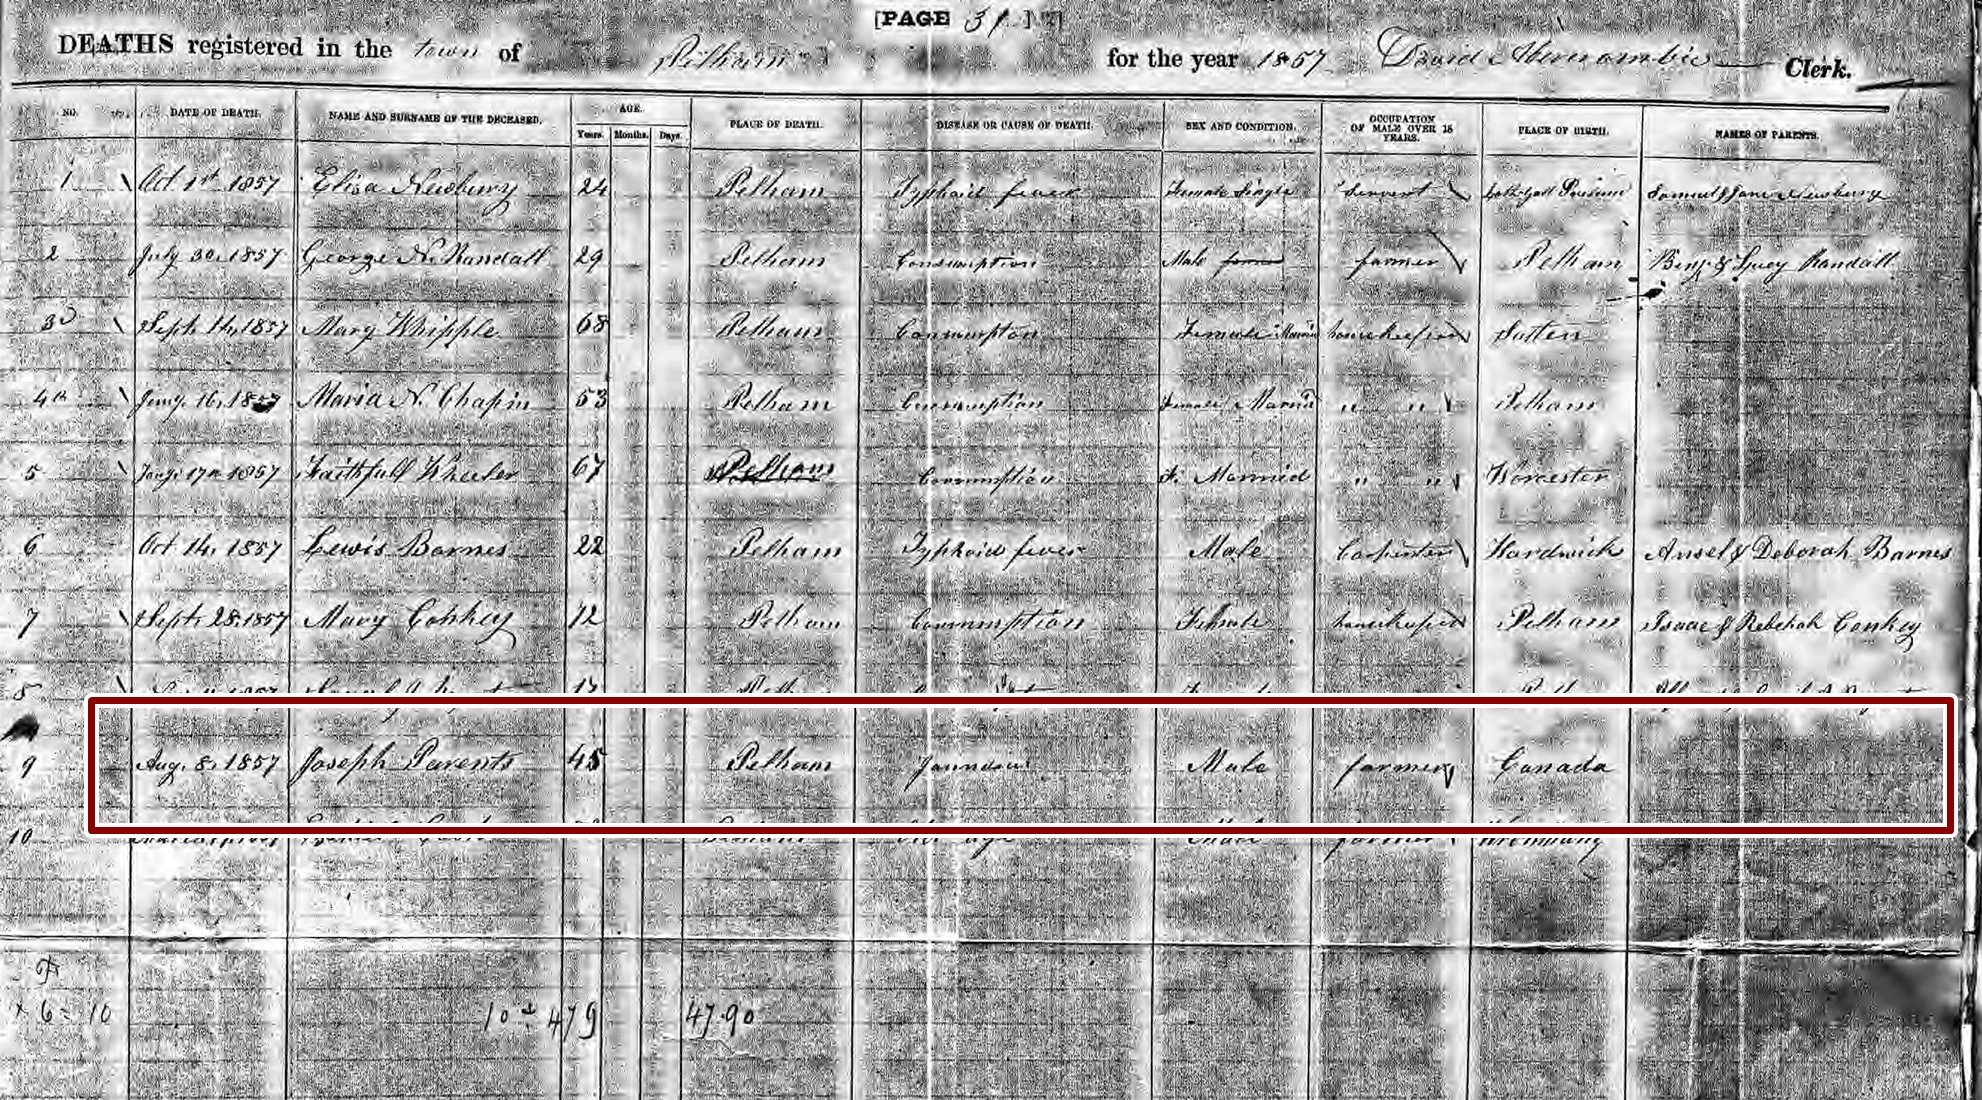 [PAGE 31]
DEATHS registered in the town of Pelham for the year 1857 David Abercrombie Clerk.
NO. DATE OF DEATH. NAME AND SURNAME OF THE DECEASED. AGE. PLACE OF DEATH. DISEASE OR CAUSE OF DEATH. SEX AND CONDITION. OCCUPATION OF MALE OVER 15 YEARS. PLACE OF BIRTH. NAMES OF PARENTS.
Years. Months. Days.
1 Oct 1st 1857 Eliza Newbury 24 Pelham Typhoid fever Female Single Servent Samuel & Jane Newbury
2 July 30, 1857 George N. Randall 29 Pelham Consumption Male farmer Pelham Benj. & Lucy Randall
3d Sept. 14, 1857 Mary Whipple 68 Pelham Consumption Female Sutten
4th Jany. 16, 1857 Maria N. Chapin 53 Pelham Consumption Female Married " " Pelham
5 Jany. 17th 1857 Faithfull Wheeler 67 Pelham Consumption F. Married " " Worcester
6 Oct 14, 1857 Lewis Barnes 22 Pelham Typhoid fever Male Carpenter Hardwick Ansel & Deborah Barnes
7 Sept. 28, 1857 Mary Conkey 72 Pelham Consumption Female Pelham Isaac & Rebekah Conkey
8
9 Aug. 8, 1857 Joseph Parents 45 Pelham Male farmer Canada
10
6 = 10 10 ÷ 479 47.90